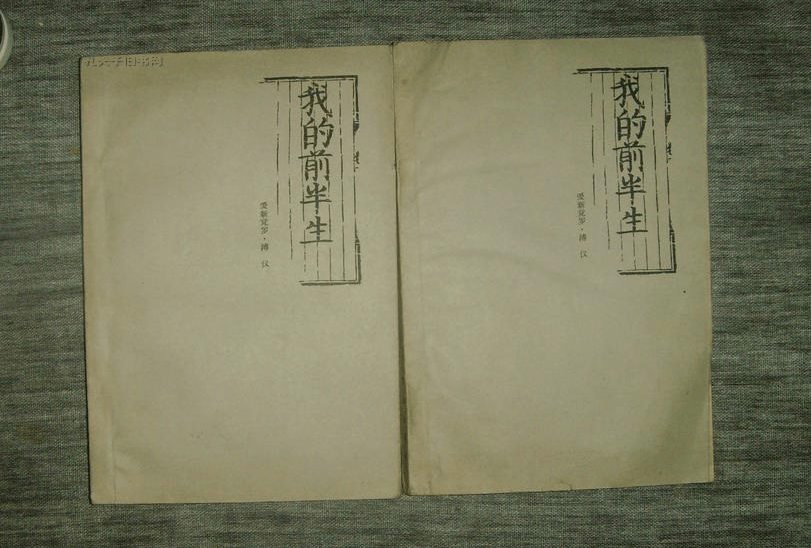 孔夫子旧书网
我的前半生
爱新觉罗·溥 仪
我的前半生
爱新觉罗·溥 仪